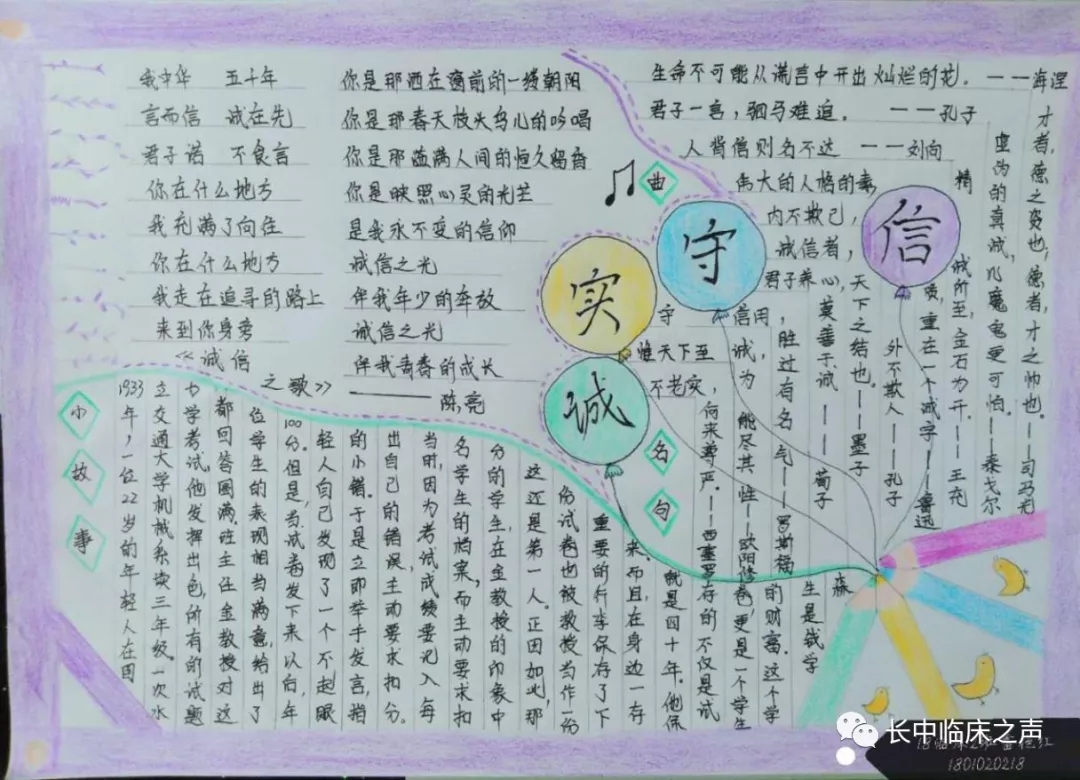 我中华 五十年
言而信 诚在先
君子诺 不食言
你在什么地方
我充满了向往
你在什么地方
我走在追寻的路上
来到你身旁
你是那洒在窗前的一缕朝阳
你是那春天枝头鸟儿的吟唱
你是那溢满人间的恒久留香
你是映照心灵的光芒
是我永不变的信仰
诚信之光
伴我年少的奔放
诚信之光
伴我青春的成长
<<诚信之歌>>
——陈亮
曲
生命不可能从谎言中开出灿烂的花。——海涅
君子一言，驷马难追。——孔子
人背信则名不达 ——刘向
才者，德之资也；德者，才之帅也。——司马光
虚伪的真诚，比魔鬼更可怕。——泰戈尔
精诚所至，金石为开。——王充
伟大的人格的素质，重在一个诚字——鲁迅
内不欺己，外不欺人——孔子
诚信者，天下之结也。——墨子
君子养心，莫善于诚——荀子
守信用，胜过有名气——罗斯福
惟天下至诚，为能尽其性——欧阳修
不老实，何来尊严。——西塞罗
诚
实
守
信
名
句
小
故
事
1933年，一位22岁的年轻人在国
立交通大学机械系读三年级。一次水
力学考试，他发挥出色，所有的试题
都回答圆满。班主任金教授对这
位学生的表现相当满意，给出了
100分。但是，当试卷发下来以后，年
轻人自己发现了一个不起眼
的小错。于是立即举手发言，指
出自己的错误，主动要求扣分。
当时，因为考试成绩要记入每
名学生的档案，而主动要求扣
分的学生，在金教授的印象中
这还是第一人。正因如此，那
份试卷也被教授当作一份
重要的行李保存了下
来。而且，在身边一存
就是四十年。他保
存的不仅是试
卷，更是一个学生
的财富。这个学
生是钱学
森
长中临床之声
1801020218